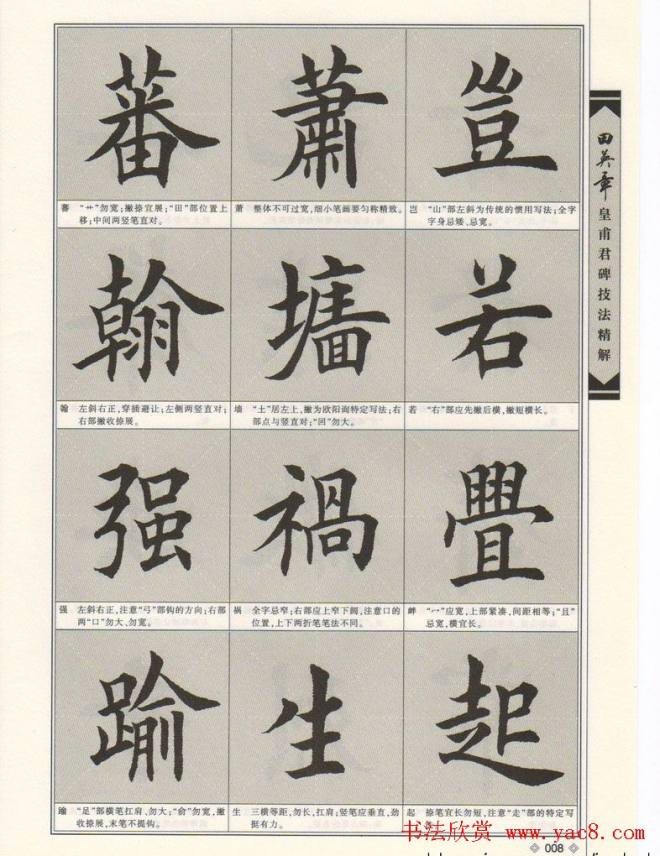 蕃
蕭
豈
蕃 “艹”勿宽;撇捺宜展;“田”部位置上
移;中间两竖笔直对。
萧 整体不可过宽,细小笔画要匀称精致。
岂 “山”部左斜为传统的惯用写法;全字
字身忌矮、忌宽。
翰
墙
若
翰 左斜右正,穿插避让;左侧两竖直对;
右部撇收捺展。
墙 “土”居左上,撇为欧阳询特定写法;右
部点与竖直对;“回”勿大。
若 “右”部应先撇后横,撇短横长。
强
禍
疊
强 左斜右正,注意“弓”部钩的方向;右部
两“口”勿大、勿宽。
祸 全字忌窄;右部应上窄下阔,注意口的
位置,上下两折笔笔法不同。
“冖”应宽,上部紧凑,间距相等;“且”
忌宽,横宜长。
踰
生
起
“足”部横笔扛肩、勿大;“俞”勿宽,撇
收捺展,末笔不提钩。
生 三横等距,勿长,扛肩;竖笔应垂直,劲
挺有力。
起 捺笔宜长勿短,注意“走”部的特定写
田英章
皇甫君碑技法精解
书法欣赏 www.yac8.com
008